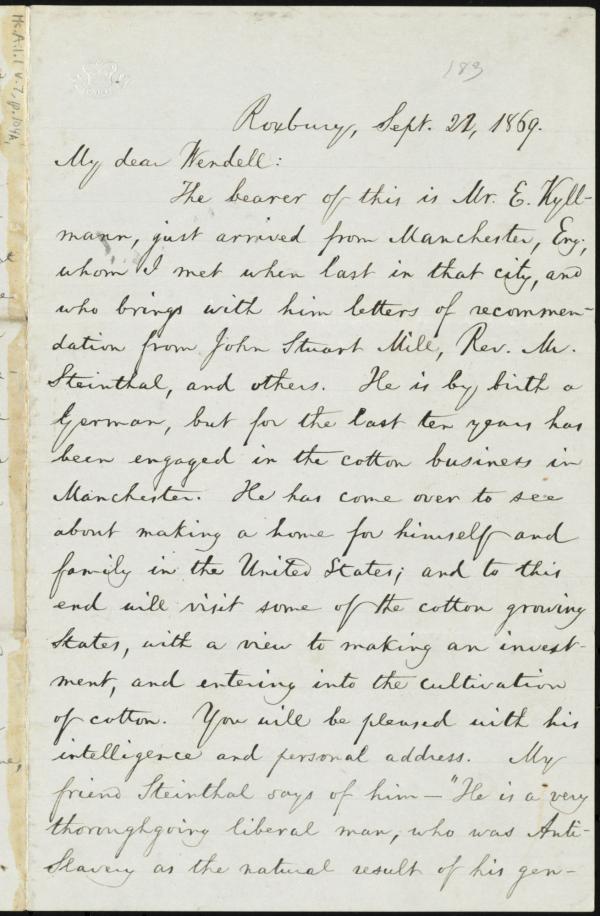 Ms.A.1.1 v.7, p.104A
183
Roxbury, Sept. 22, 1869.
My dear Wendell:
The bearer of this is Mr. E. Kyll-
mann, just arrived from Manchester, Eng.,
whom I met when last in that city, and
who brings with him letters of recommen-
dation from John Stuart Mill, Rev. Mr.
Steinthal, and others. He is by birth a
German, but for the last ten years has
been engaged in the cotton business in
Manchester. He has come over to see
about making a home for himself and
family in the United States; and to this
end will visit some of the cotton growing
States, with a view to making an invest-
ment, and entering into the cultivation
of cotton. You will be pleased with his
intelligence and personal address. My
friend Steinthal says of him—"He is a very
thoroughgoing liberal man, who was Anti-
Slavery as the natural result of his gen-